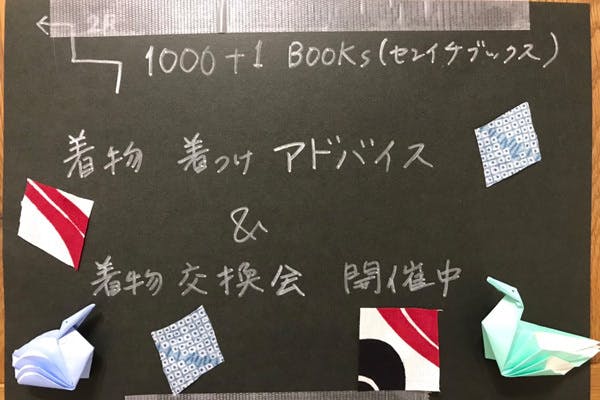 2F
1000+1 BOOKS(センイチブックス)
着物 着つけ アドバイス
&
着物 交換会 開催中